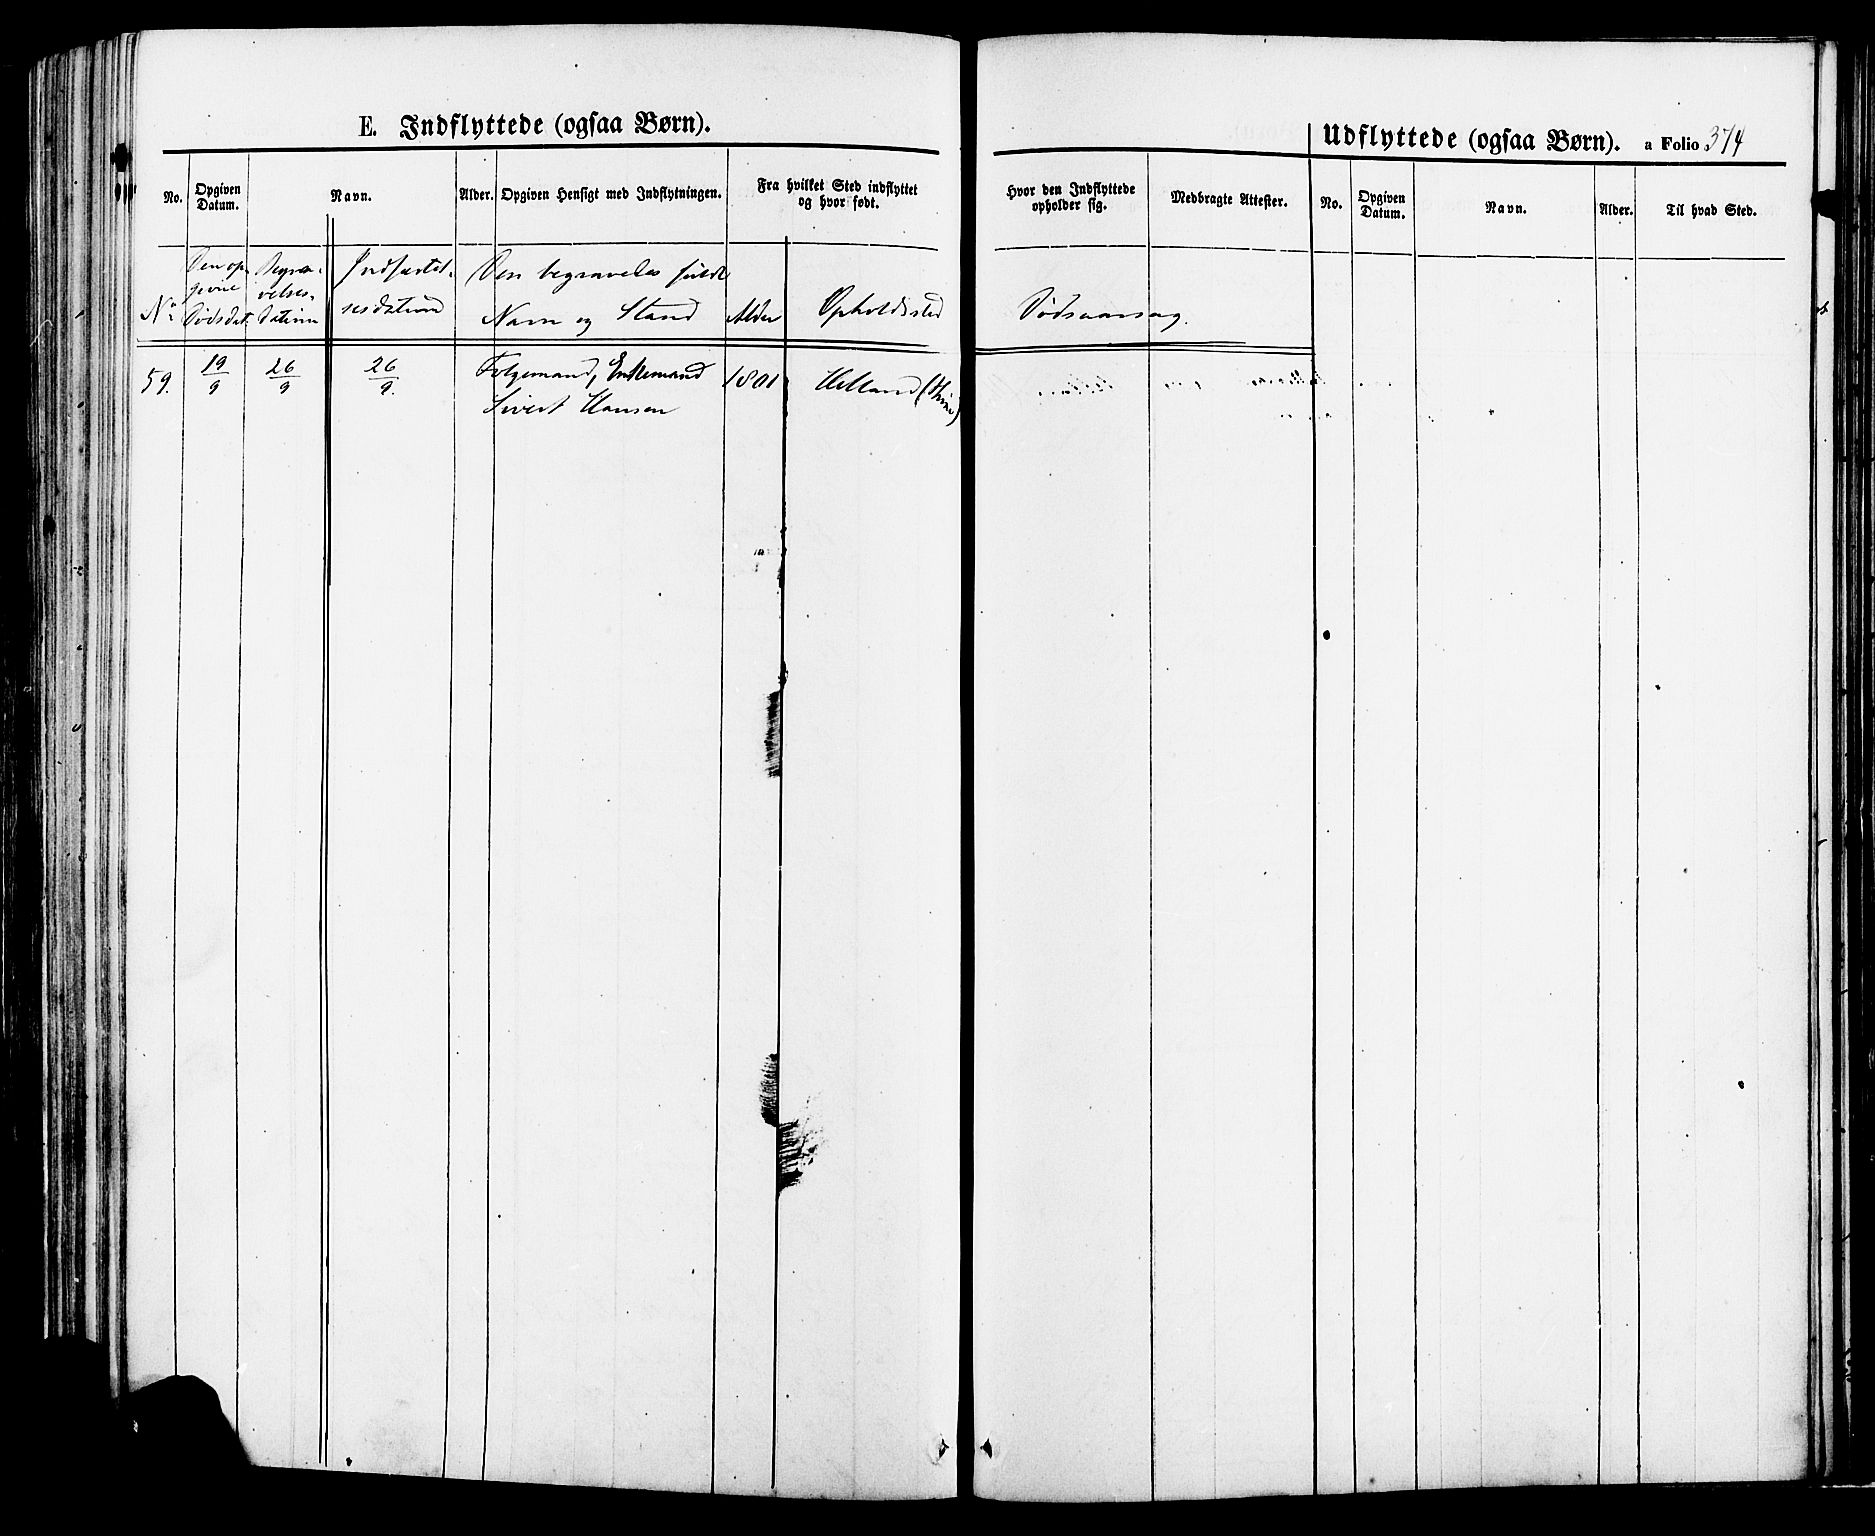 E. Indflyttede (ogsaa Børn).
No.
Opgiven
Datum.
Navn.
Alder.
Opgiven Hensigt med Indflytningen.
Fra hvilket Sted indflyttet
og hvor født.
No
Den op-
givne
Dødsdat.
Begra-
velses-
datum
Indfærtel-
sesdatum
Den begravedes fulde
Navn og Stand
Alder
Opholdssted
59.
19/9
26/9
26/9.
Folgemand, Enkemand
Sivert Hansen
1801
Helland
Udflyttede (ogsaa Børn). a Folio 374
Hvor den Indflyttede
opholder sig.
Medbragte Attester.
No.
Opgiven
Datum.
Navn.
Alder.
Til hvad Sted.
Dødsaarsag.